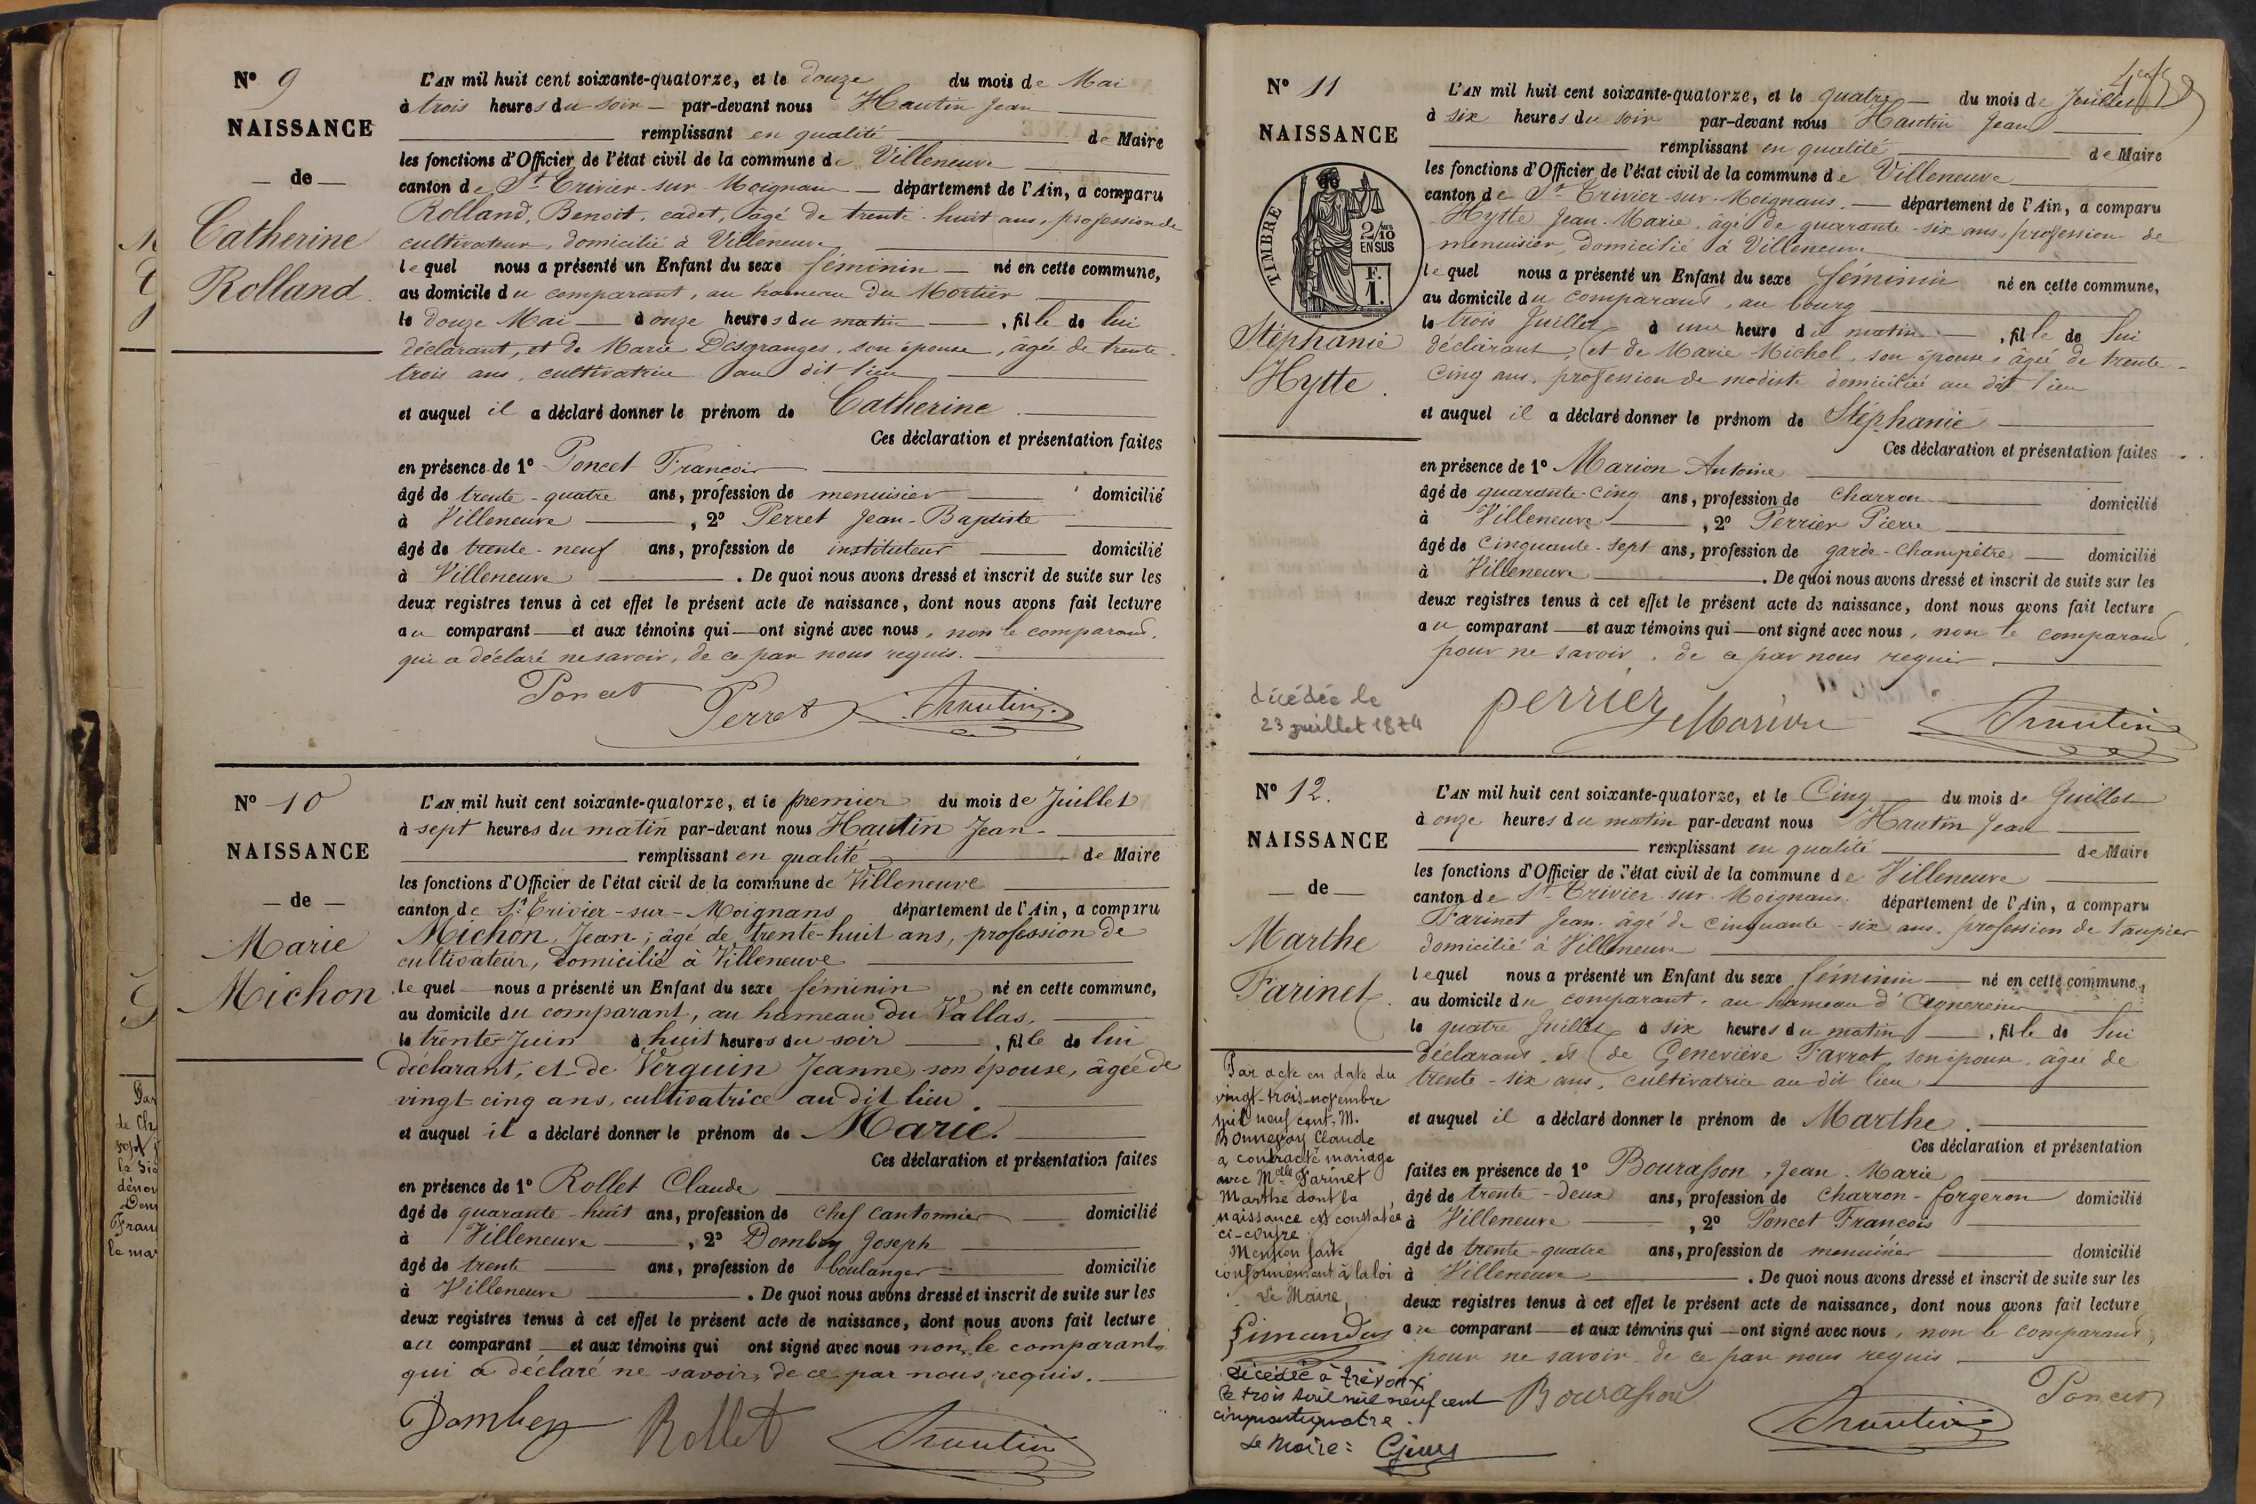 N° 9
NAISSANCE
— de —
Catherine
Rolland.
L'AN mil huit cent soixante-quatorze, et le douze du mois de Mai
à trois heures du soir — par-devant nous Hautin Jean
remplissant en qualité de Maire
les fonctions d'Officier de l'état civil de la commune de Villeneuve
canton de St Trivier-sur-Moignans — département de l'Ain, a comparu
Rolland, Benoit, cadet, âgé de trente-huit ans, profession de
cultivateur, domicilié à Villeneuve
lequel nous a présenté un Enfant du sexe féminin — né en cette commune,
au domicile du comparant, au hameau du Mortier
le douze Mai — à onze heures du matin —, fille de lui
déclarant, et de Marie Desgranges, son épouse, âgée de trente-
trois ans, cultivatrice au dit lieu
et auquel il a déclaré donner le prénom de Catherine
Ces déclaration et présentation faites
en présence de 1° Poncet François
âgé de trente-quatre ans, profession de menuisier domicilié
à Villeneuve, 2° Perret Jean-Baptiste
âgé de trente-neuf ans, profession de instituteur domicilié
à Villeneuve. De quoi nous avons dressé et inscrit de suite sur les
deux registres tenus à cet effet le présent acte de naissance, dont nous avons fait lecture
au comparant — et aux témoins qui — ont signé avec nous, non le comparant,
qui a déclaré ne savoir, de ce par nous requis.
Poncet Perret Hautin
N° 10
NAISSANCE
— de —
Marie
Michon
L'AN mil huit cent soixante-quatorze, et le premier du mois de Juillet
à sept heures du matin par-devant nous Hautin Jean
remplissant en qualité de Maire
les fonctions d'Officier de l'état civil de la commune de Villeneuve
canton de St Trivier-sur-Moignans département de l'Ain, a comparu
Michon, Jean, âgé de trente-huit ans, profession de
cultivateur, domicilié à Villeneuve
lequel — nous a présenté un Enfant du sexe féminin né en cette commune,
au domicile du comparant, au hameau du Vallas,
le trente Juin à huit heures du soir, fille de lui
déclarant, et de Verguin Jeanne, son épouse, âgée de
vingt-cinq ans, cultivatrice au dit lieu.
et auquel il a déclaré donner le prénom de Marie.
Ces déclaration et présentation faites
en présence de 1° Rollet Claude
âgé de quarante-huit ans, profession de chef cantonnier domicilié
à Villeneuve, 2° Dombey Joseph
âgé de trente ans, profession de boulanger domicilié
à Villeneuve. De quoi nous avons dressé et inscrit de suite sur les
deux registres tenus à cet effet le présent acte de naissance, dont nous avons fait lecture
au comparant et aux témoins qui ont signé avec nous non le comparant,
qui a déclaré ne savoir, de ce par nous requis.
Dombey Rollet Hautin
N° 11
NAISSANCE
TIMBRE
2/10 EN SUS
F. 1.
Stéphanie
Hytte.
L'AN mil huit cent soixante-quatorze, et le quatre — du mois de Juillet
à six heures du soir par-devant nous Hautin Jean
remplissant en qualité de Maire
les fonctions d'Officier de l'état civil de la commune de Villeneuve
canton de St Trivier-sur-Moignans. — département de l'Ain, a comparu
Hytte Jean-Marie, âgé de quarante-six ans, profession de
menuisier, domicilié à Villeneuve
lequel nous a présenté un Enfant du sexe féminin né en cette commune,
au domicile du comparant, au bourg
le trois Juillet à une heure du matin, fille de lui
déclarant, et de Marie Michel, son épouse, âgée de trente-
cinq ans, profession de modiste domiciliée au dit lieu
et auquel il a déclaré donner le prénom de Stéphanie
Ces déclaration et présentation faites
en présence de 1° Marion Antoine
âgé de quarante-cinq ans, profession de charron domicilié
à Villeneuve, 2° Perrier Pierre
âgé de cinquante-sept ans, profession de garde-champêtre domicilié
à Villeneuve. De quoi nous avons dressé et inscrit de suite sur les
deux registres tenus à cet effet le présent acte de naissance, dont nous avons fait lecture
au comparant — et aux témoins qui — ont signé avec nous, non le comparant
pour ne savoir, de ce par nous requis.
décédée le
23 juillet 1874
perrier Marion Hautin
N° 12.
NAISSANCE
— de —
Marthe
Farinet.
L'AN mil huit cent soixante-quatorze, et le Cinq du mois de Juillet
à onze heures du matin par-devant nous Hautin Jean
remplissant en qualité de Maire
les fonctions d'Officier de l'état civil de la commune de Villeneuve
canton de St Trivier-sur-Moignans. département de l'Ain, a comparu
Farinet Jean, âgé de cinquante-six ans, profession de taupier
domicilié à Villeneuve
lequel nous a présenté un Enfant du sexe féminin — né en cette commune,
au domicile du comparant, au hameau d'Agnereins
le quatre Juillet à six heures du matin, fille de lui
déclarant, et de Geneviève Favrot, son épouse, âgée de
trente-six ans, cultivatrice au dit lieu,
et auquel il a déclaré donner le prénom de Marthe.
Ces déclaration et présentation
faites en présence de 1° Bourasson, Jean-Marie
âgé de trente-deux ans, profession de charron-forgeron domicilié
à Villeneuve, 2° Poncet François
âgé de trente-quatre ans, profession de menuisier domicilié
à Villeneuve. De quoi nous avons dressé et inscrit de suite sur les
deux registres tenus à cet effet le présent acte de naissance, dont nous avons fait lecture
au comparant — et aux témoins qui — ont signé avec nous, non le comparant,
pour ne savoir de ce par nous requis
Bourasson Hautin Poncet
Par acte en date du
vingt-trois novembre
mil neuf cent, M.
Bonnefoy Claude
a contracté mariage
avec Melle Farinet
Marthe dont la
naissance est constatée
ci-contre
Mention faite
conformément à la loi
Le Maire,
décédée à Trévoux
le trois avril mil neuf cent
cinquante quatre.
Le Maire: